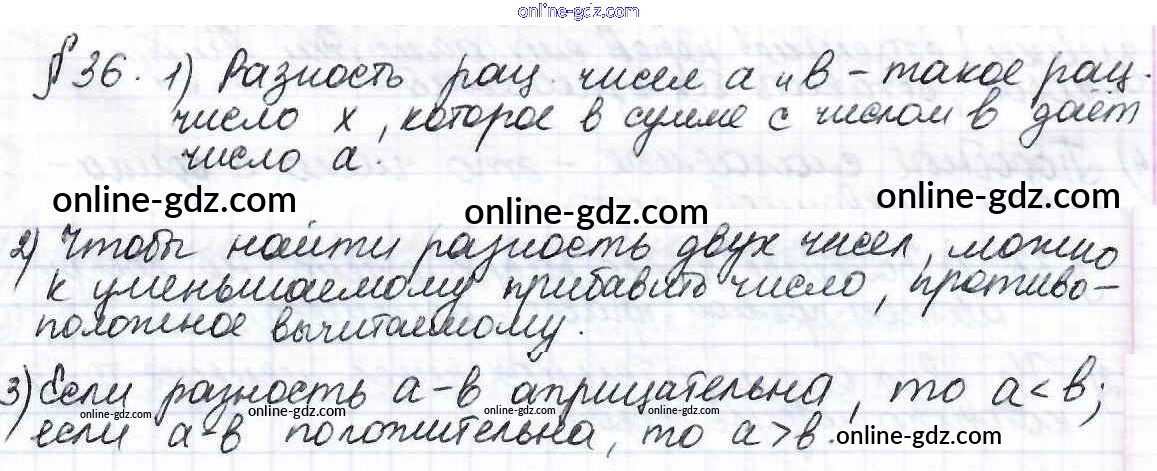 online-gdz.com
§ 36. 1) Разность рац. чисел а и в – такое рац.
число х, которое в сумме с числом в даёт
число а.
online-gdz.com online-gdz.com online-gdz.com
2) Чтобы найти разность двух чисел, можно
к уменьшаемому прибавить число, противо-
положное вычитаемому.
3) Если разность а-в отрицательна, то а < в;
online-gdz.com online-gdz.com online-gdz.com online-gdz.com online-gdz.com
если а-в положительна, то а > в.